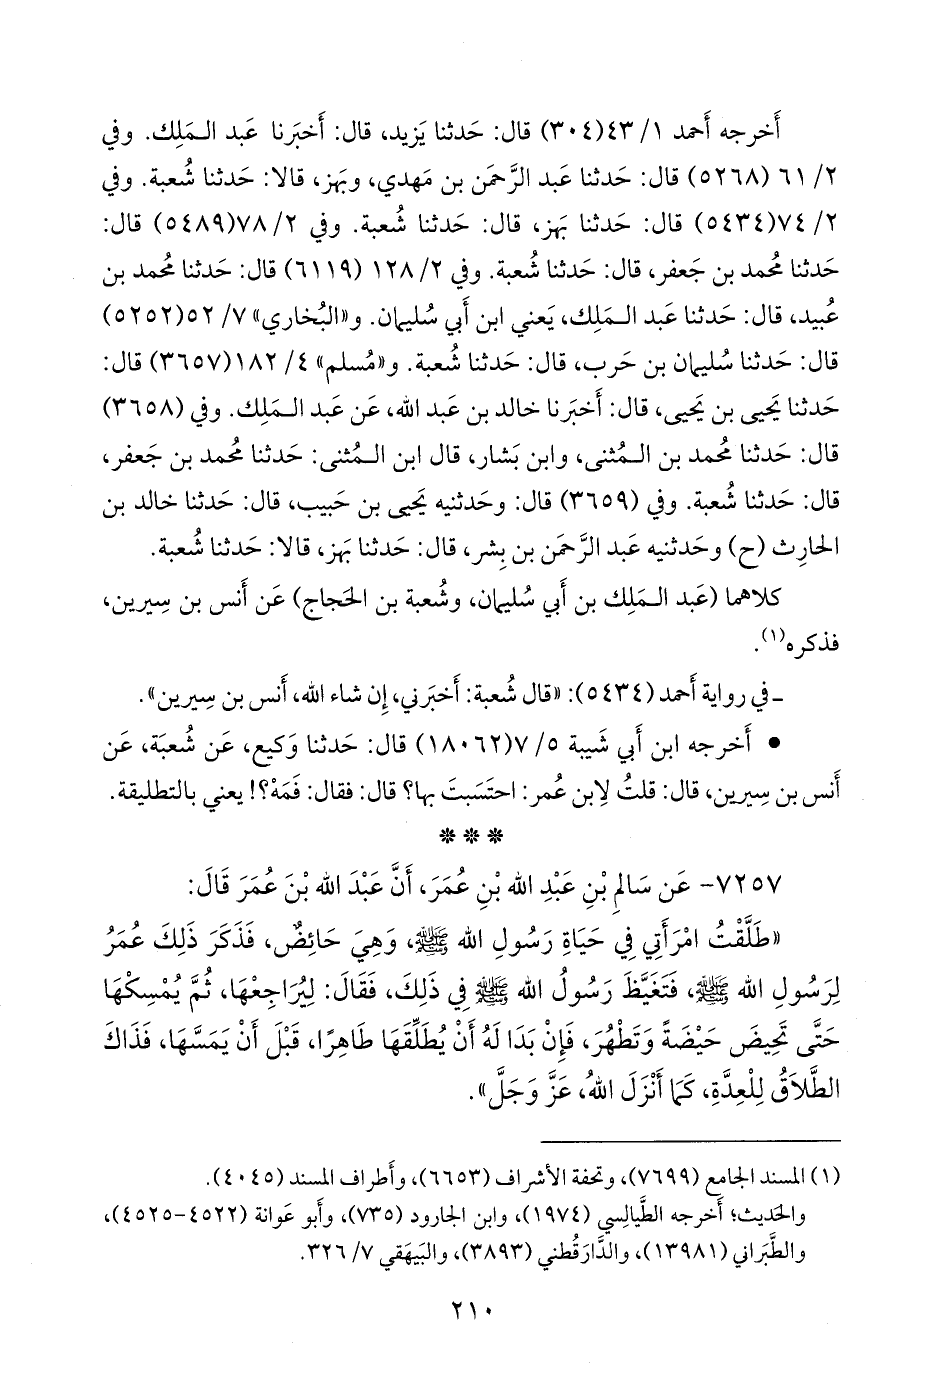 أَخرجه أَحمد ١/ ٤٣(٣٠٤) قال: حَدثنا يَزيد، قال: أَخبَرنا عَبد الـمَلِك. وفي
٢/ ٦١ (٥٢٦٨) قال: حَدثنا عَبد الرَّحمَن بن مَهدي، وبَهز، قالا: حَدثنا شُعبة. وفي
٢/ ٧٤(٥٤٣٤) قال: حَدثنا بَهز، قال: حَدثنا شُعبة. وفي ٢/ ٧٨(٥٤٨٩) قال:
حَدثنا مُحمد بن جَعفر، قال: حَدثنا شُعبة. وفي ٢/ ١٢٨ (٦١١٩) قال: حَدثنا مُحمد بن
عُبيد، قال: حَدثنا عَبد الـمَلِك، يَعني ابن أَبي سُليمان. و«البُخاري» ٧/ ٥٢(٥٢٥٢)
قال: حَدثنا سُليمان بن حَرب، قال: حَدثنا شُعبة. و«مُسلم» ٤/ ١٨٢(٣٦٥٧) قال:
حَدثنا يَحيى بن يَحيى، قال: أَخبَرنا خالد بن عَبد الله، عَن عَبد الـمَلِك. وفي (٣٦٥٨)
قال: حَدثنا مُحمد بن الـمُثنى، وابن بَشار، قال ابن الـمُثنى: حَدثنا مُحمد بن جَعفر،
قال: حَدثنا شُعبة. وفي (٣٦٥٩) قال: وحَدثنيه يَحيى بن حَبيب، قال: حَدثنا خالد بن
الحارِث (ح) وحَدثنيه عَبد الرَّحمَن بن بِشر، قال: حَدثنا بَهز، قالا: حَدثنا شُعبة.
كلاهما (عَبد الـمَلِك بن أَبي سُليمان، وشُعبة بن الحَجاج) عَن أَنس بن سِيرين،
فذكره(١).
ـ في رواية أَحمد (٥٤٣٤): «قال شُعبة: أَخبَرني، إِن شاء الله، أَنس بن سِيرين».
• أَخرجه ابن أَبي شَيبة ٥/ ٧(١٨٠٦٢) قال: حَدثنا وَكيع، عَن شُعبَة، عَن
أَنس بن سِيرين، قال: قلتُ لِابن عُمر: احتَسَبتَ بها؟ قال: فقال: فَمَهْ؟! يعني بالتطليقة.
* * *
٧٢٥٧- عَن سَالِمِ بْنِ عَبْدِ الله بْنِ عُمَرَ، أَنَّ عَبْدَ الله بْنَ عُمَرَ قَالَ:
«طَلَّقْتُ امْرَأَتِي فِي حَيَاةِ رَسُولِ الله ﷺ، وَهِيَ حَائِضٌ، فَذَكَرَ ذَلِكَ عُمَرُ
لِرَسُولِ الله ﷺ، فَتَغَيَّظَ رَسُولُ الله ﷺ فِي ذَلِكَ، فَقَالَ: لِيُرَاجِعْهَا، ثُمَّ يُمْسِكْهَا
حَتَّى تَحِيضَ حَيْضَةً وَتَطْهُرَ، فَإِنْ بَدَا لَهُ أَنْ يُطَلِّقَهَا طَاهِرًا، قَبْلَ أَنْ يَمَسَّهَا، فَذَاكَ
الطَّلاَقُ لِلْعِدَّةِ، كَمَا أَنْزَلَ اللهُ، عَزَّ وَجَلَّ».
(١) المسند الجامع (٧٦٩٩)، وتحفة الأشراف (٦٦٥٣)، وأَطراف المسند (٤٠٤٥).
والحَديث؛ أَخرجه الطَّيالِسي (١٩٧٤)، وابن الجارود (٧٣٥)، وأَبو عَوانة (٤٥٢٢-٤٥٢٥)،
والطَّبَراني (١٣٩٨١)، والدَّارَقُطني (٣٨٩٣)، والبَيهَقي ٧/ ٣٢٦.
٢١٠